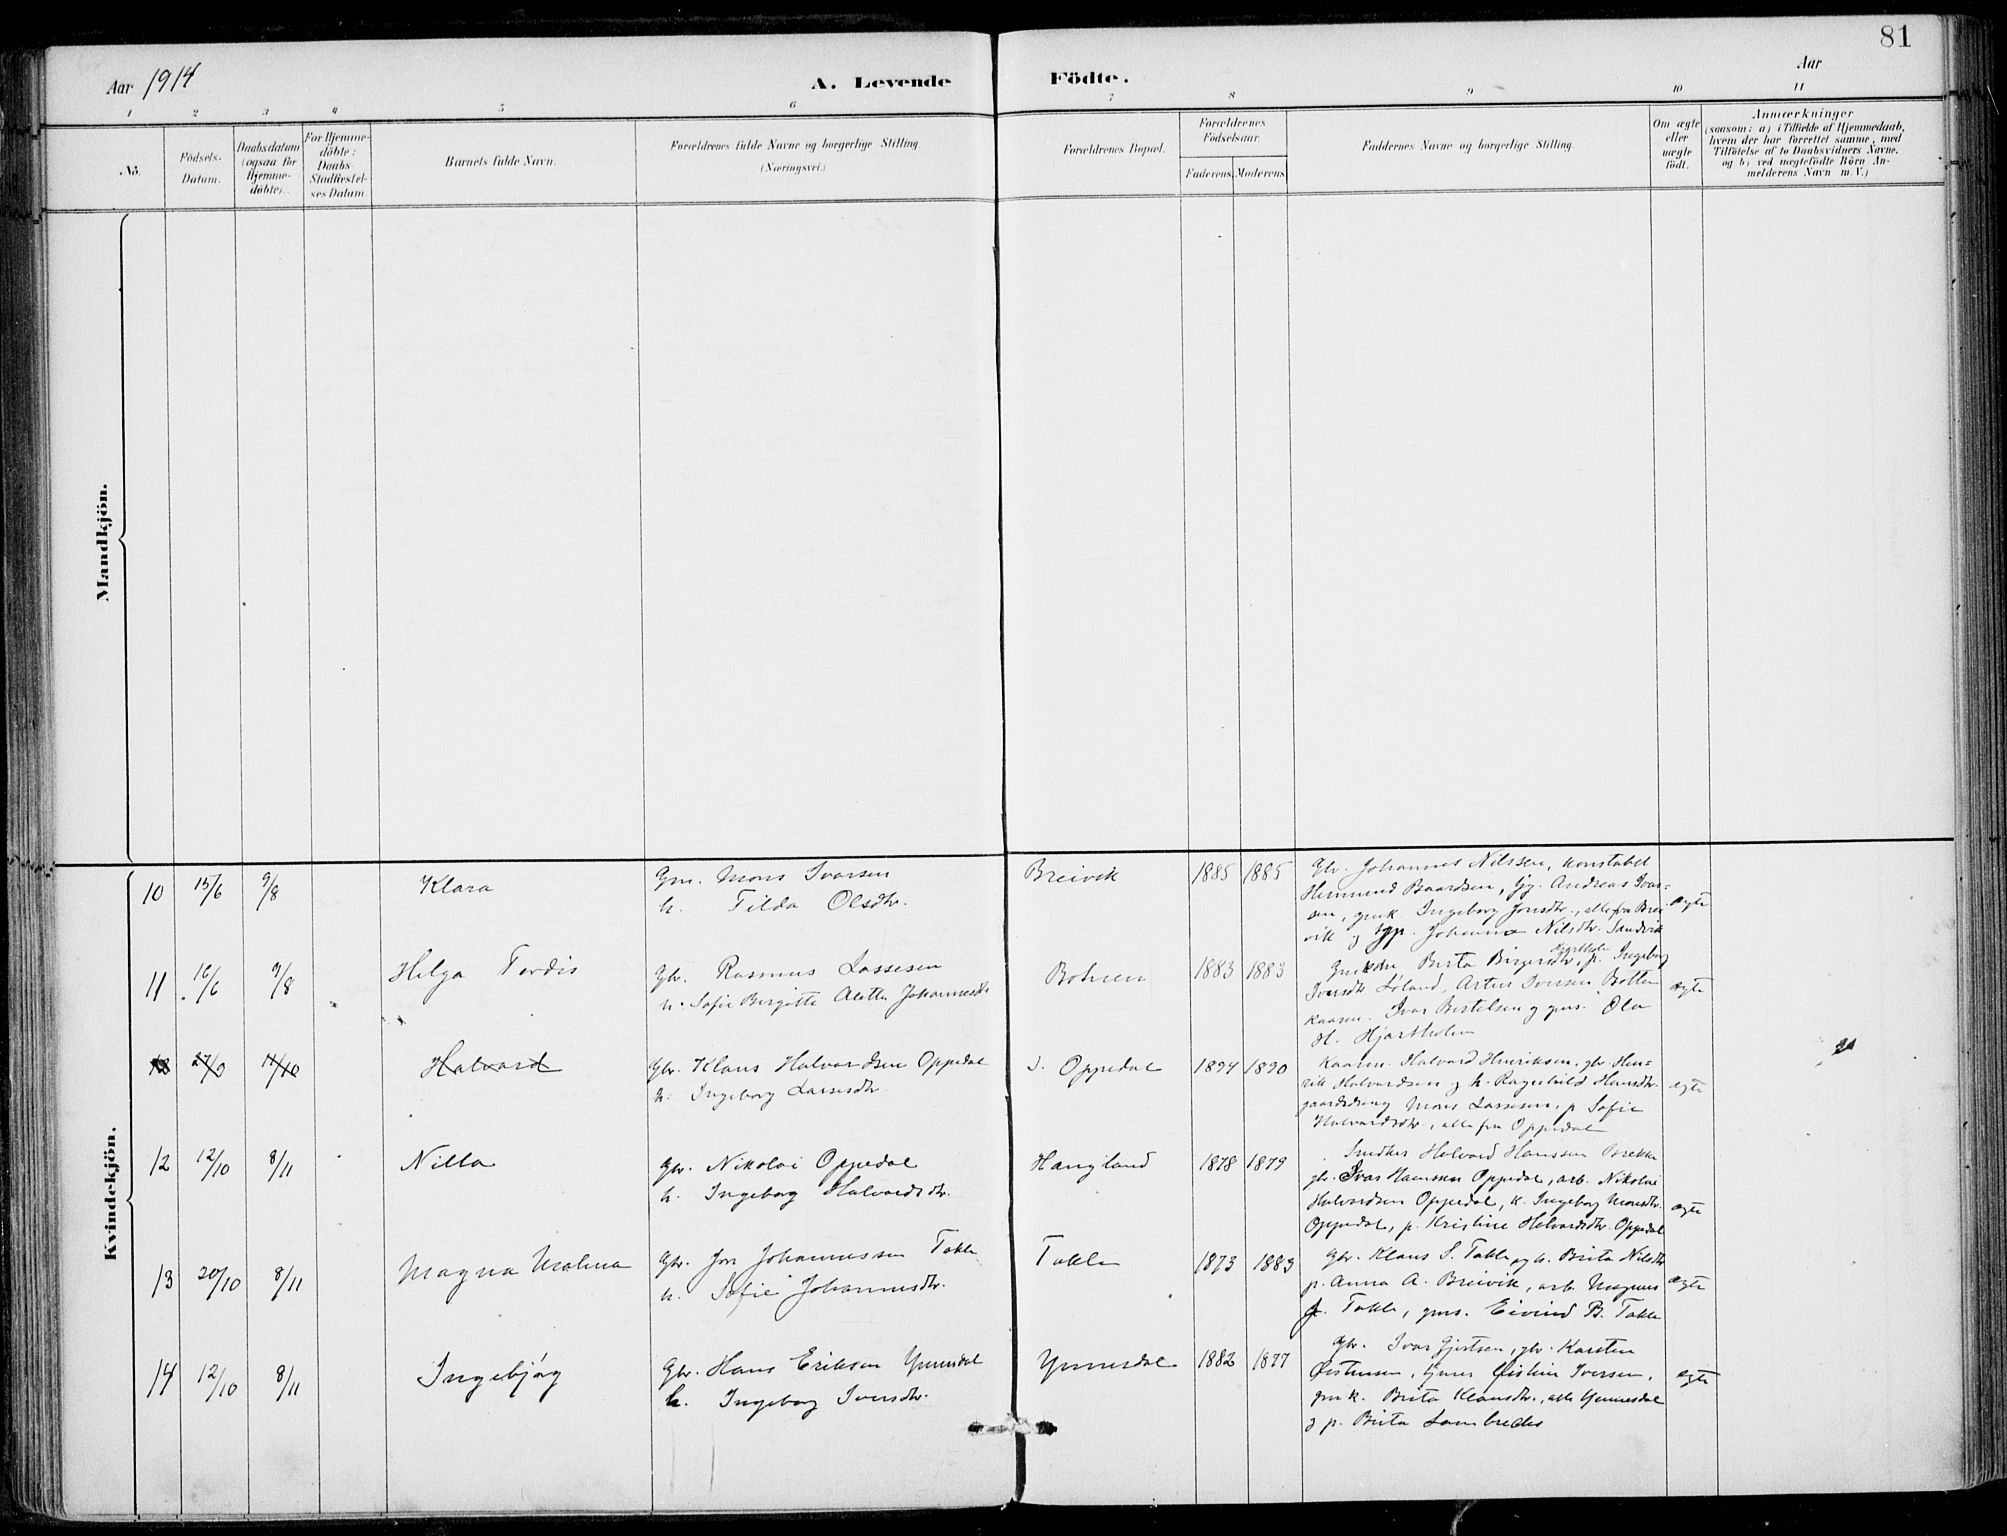 81
Aar 1914
A. Levende Födte.
Aar
1 2 3 4 5 6 7 8 9 10 11
No.
Födsels-Datum.
Daabsdatum (ogsaa for Hjemme-döbte).
For Hjemme-döbte: Daabs-Stadfæstel-ses Datum
Barnets fulde Navn.
Forældrenes fulde Navne og borgerlige Stilling. (Næringsvei.)
Forældrenes Bopæl.
Forældrenes Födselsaar.
Faderens. Moderens.
Faddernes Navne og borgerlige Stilling.
Om ægte eller uægte födt.
Anmærkninger
(saasom: a) i Tilfælde af Hjemmedaab,
hvem der har forrettet samme, med
Tilföielse af to Daabsvidners Navne,
og b) ved uægtefödte Börn An-
melderens Navn m. V.)
Mandkjön.
Kvindekjön.
10 15/6 9/8 Klara
Gm. Mons Ivarsen
h. Tilda Olsdtr.
Breivik 1885 1885
Gbr. Johannes Nilssen, Konstabel
Hemmund Baardsen, Andreas Ivar-
sen, gmk. Ingeborg Jonsdtr., alle fra Brei
vik og Johanna Nilsdtr. Sandvik
ægte
11 16/6 9/8 Helga Tordis
Gbr. Rasmus Lassesen
h. Sofie Birgitte Alette Johannesdtr
Botnen 1883 1883
Brita Birgersdtr, Hjartholm p. Ingeborg
Iversdtr Löland, Artur Iversen Botten
Kaarm. Ivar Bertelsen og gms. Ola
H. Hjartholm
ægte
27/9 11/10 Halvard
Gbr. Klaus Halvardsen Oppedal
h. Ingeborg Lassesdtr
Oppedal 1894 1890
Kaarm. Halvard Henriksen, gbr. Hen-
rik Halvardsen og h. Ragnhild Hansdtr.
gaardsdreng Mons Lassesen, p Sofie
Halvardsdtr., alle fra Oppedal
ægte
12 12/10 8/11 Nilla
Gbr. Nikolai Oppedal
h. Ingeborg Halvardsdtr.
Haugland 1878 1879
Smedker Halvard Hanssen Brekke
gbr. Ivar Hanssen Oppedal, arb. Nikolai
Halvardsen Oppedal, k. Ingeborg Monsdtr.
Oppedal, p. Kristine Halvardsdtr. Oppedal
ægte
13 20/10 8/11 Magna Malena
Gbr. Jon Johannessen Takle
h. Sofie Johannesdtr.
Takle 1873 1883
Gbr. Klaus S. Takle og h. Brita Nilsdtr
p. Anna A. Breivik, arb. Magnus
J. Takle, gms. Eivind B. Takle
ægte
14 12/10 8/11 Ingebjørg
Gbr. Hans Eriksen Ynnesdal
h. Ingeborg Iversdtr.
Ynnesdal 1882 1877
Gbr. Ivar Gjertsen, gbr. Karsten
Østensen, Iversen,
gmk. Brita Klausdtr., alle Ynnesdal
og p. Brita Lambredes
ægte